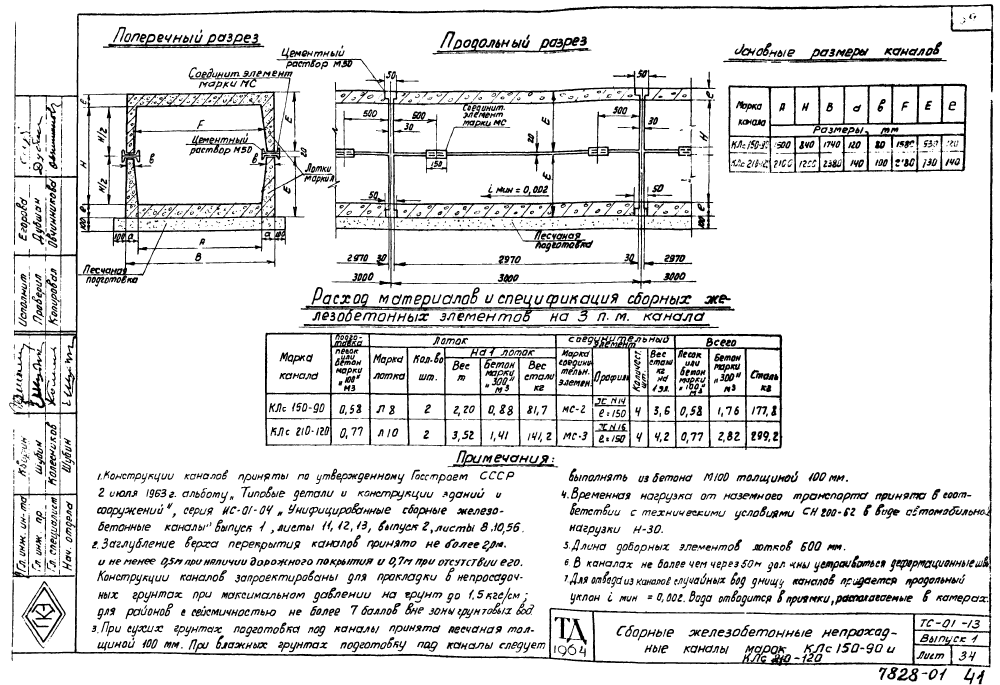 Поперечный разрез
Продольный разрез
Основные размеры каналов
Цементный
раствор М50
Соединит. элемент
марки МС
Цементный
раствор М50
Лотки
марки Л
Песчаная
подготовка
Соединит.
элемент
марки МС
i мин = 0,002
Песчаная
подготовка
H/2
H/2
H
F
E
E
A
B
100 а а 100
50 50
500 500 500
30 30
150
20
50 50
2970 30 2970 30 2970
3000 3000 3000
Марка канала A H B d в F E e
Размеры, мм
КЛс 150-90 1500 840 1740 120 80 1580 530 120
КЛс 210-120 2100 1200 2380 140 100 2180 730 140
Расход материалов и спецификация сборных же-
лезобетонных элементов на 3 п.м. канала
Марка канала
Подготовка песок или бетон марки "100" м3
Лоток
Марка лотка
Кол-во шт.
На 1 лоток
Вес т
Бетон марки "300" м3
Вес стали кг
Соединительный элемент
Марка соедини- тельн. элемен.
Профиль
Количест. шт.
Вес стали кг на 1 эл.
Всего
Песок или бетон марки "100" м3
Бетон марки "300" м3
Сталь кг
КЛс 150-90 0,58 Л 8 2 2,20 0,88 81,7 МС-2 ℓ=150 4 3,6 0,58 1,76 177,8
КЛс 210-120 0,77 Л 10 2 3,52 1,41 141,2 МС-3 ℓ=150 4 4,2 0,77 2,82 299,2
Примечания:
1. Конструкции каналов приняты по утвержденному Госстроем СССР
2 июля 1963 г. альбому „Типовые детали и конструкции зданий и
сооружений", серия ИС-01-04 „Унифицированные сборные железо-
бетонные каналы" выпуск 1, листы 11, 12, 13, выпуск 2, листы 8, 10, 56.
2. Заглубление верха перекрытия каналов принято не более 2,0м.
и не менее 0,5м при наличии дорожного покрытия и 0,7м при отсутствии его.
Конструкции каналов запроектированы для прокладки в непросадоч-
ных грунтах при максимальном давлении на грунт до 1,5 кгс/см;
для районов с сейсмичностью не более 7 баллов вне зоны грунтовых вод
3. При сухих грунтах подготовка под каналы принята песчаная тол-
щиной 100 мм. При влажных грунтах подготовку под каналы следует
выполнять из бетона М100 толщиной 100 мм.
4. Временная нагрузка от наземного транспорта принята в соот-
ветствии с техническими условиями СН 200-62 в виде автомобильной
нагрузки Н-30.
5. Длина доборных элементов лотков 600 мм.
6. В каналах не более чем через 50м должны устраиваться деформационные швы
7. Для отвода из каналов случайных вод днищу каналов придается продольный
уклон i мин = 0,002. Вода отводится в приямки, располагаемые в камерах.
ТД
1964
Сборные железобетонные непроход-
ные каналы марок КЛс 150-90 и
КЛс 210-120
ТС-01-13
Выпуск 1
Лист 34
7828-01 41
Исполнит Егорова
Проверил Дубшан
Копировал Овчинникова
Гл. инж. ин-та
Гл. инж. пр. Шубин
Гл. специалист Колесников
Нач. отдела Шубин